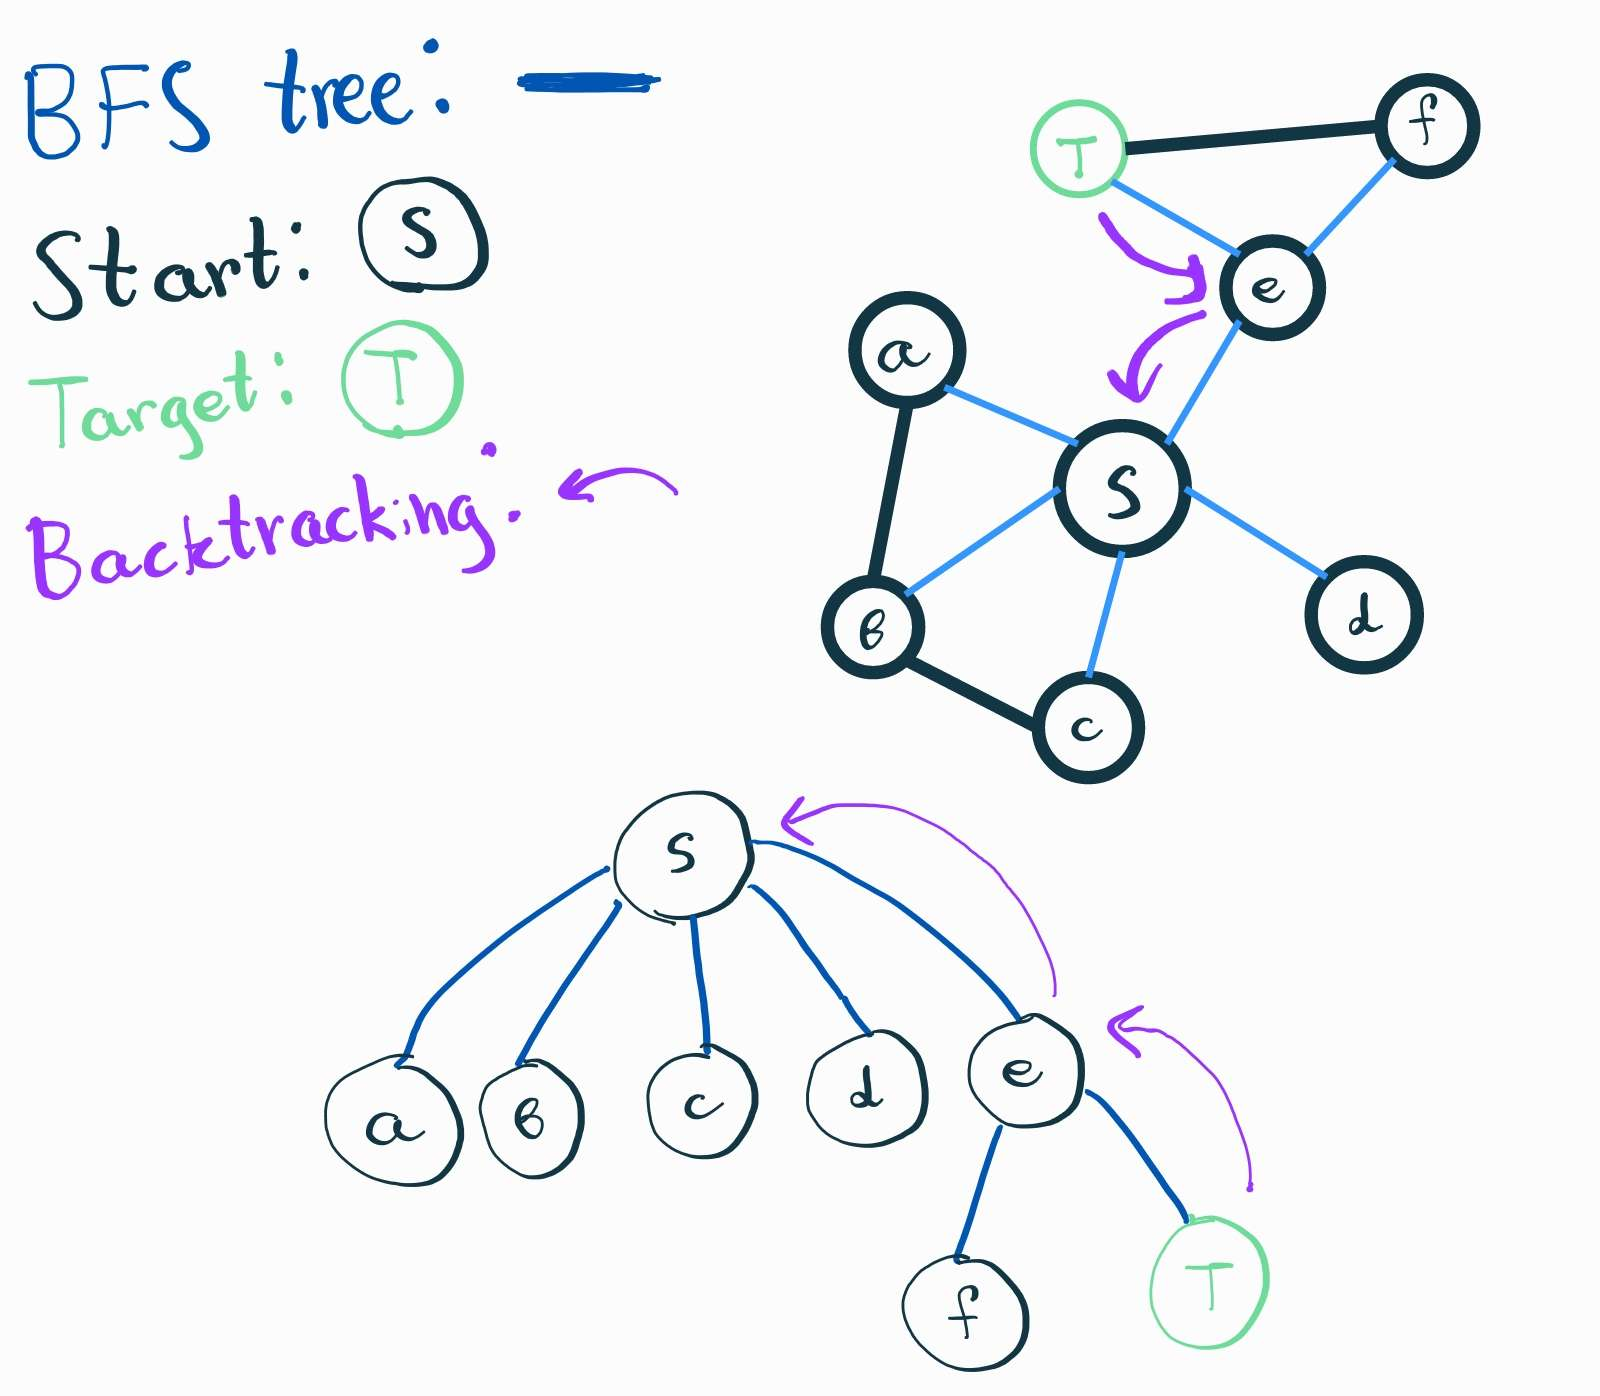 BFS tree:
Start: S
Target: T
Backtracking:
T f
e
a
S
B d
c
S
a B c d e
f T